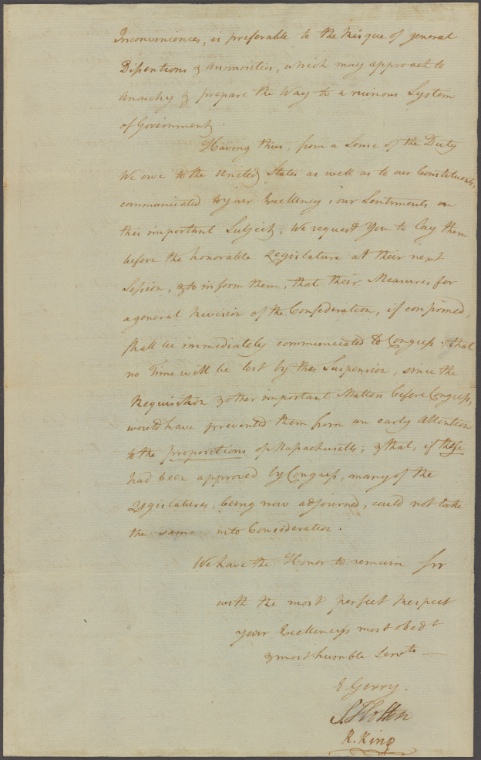 Inconveniences, is preferable to the risque of general
Dissentions & animosities, which may approach to
anarchy & prepare the Way to a ruinous System
of Government
Having thus, from a Sense of the Duty
We owe to the united States as well as to our Constituents,
communicated to your Excellency, our Sentiments on
this important Subject; We request You to lay them
before the honorable Legislature at their next
Session, & to inform them, that their Measures for
a general revision of the Confederation, if confirmed,
shall be immediately communicated to Congress: that
no Time will be lost by the Suspension, since the
Requisition & other important Matters before Congress,
would have prevented them from an early attention
to the propositions of Massachusetts; & that, if these
had been approved by Congress, many of the
Legislatures, being now adjourned, could not take
the same into Consideration.
We have the Honor to remain Sir
with the most perfect respect
your Excellency's most obedt
& most humble Servts
E Gerry.
S Holten
R. King